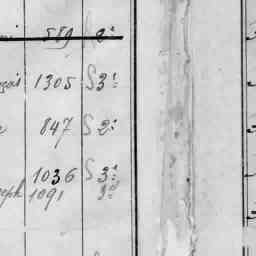 589 2:
1305 S 3:
847 S 2:
1036 S 3:
eph 1091 3: